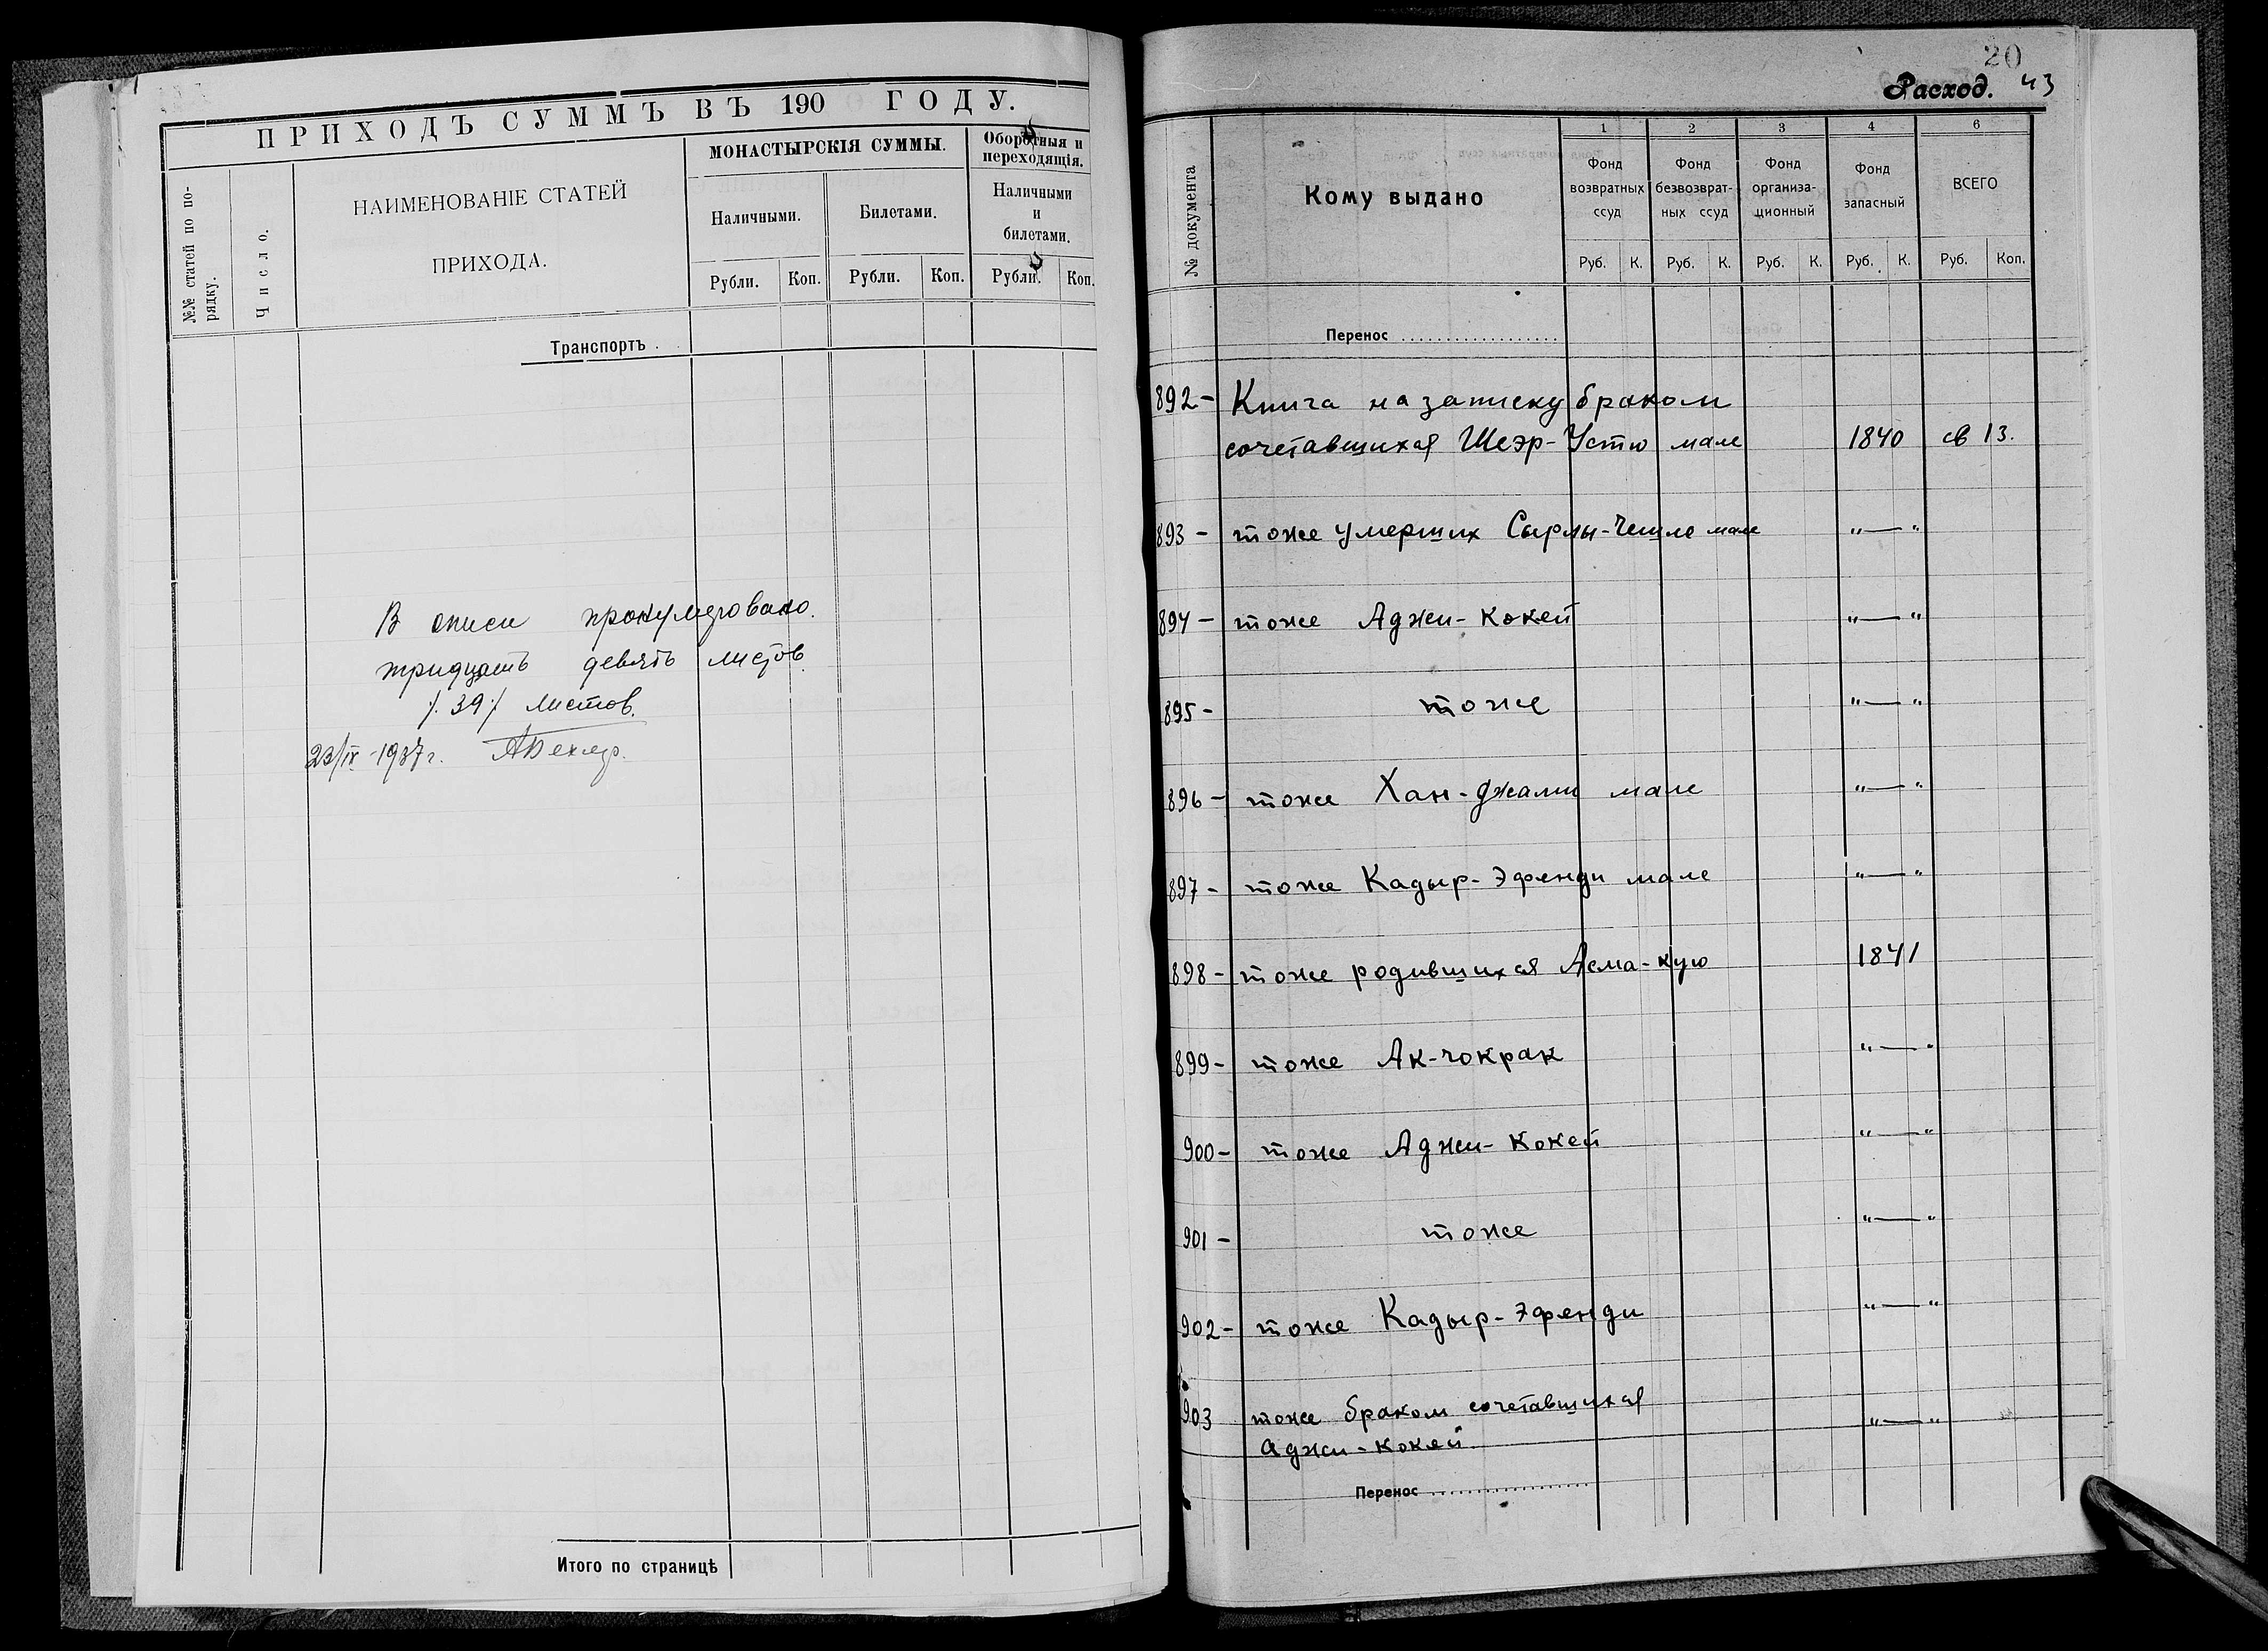 ПРИХОДЪ СУММЪ ВЪ 190 ГОДУ.
№№ статей по порядку.
Число.
НАИМЕНОВАНІЕ СТАТЕЙ
ПРИХОДА.
МОНАСТЫРСКІЯ СУММЫ.
Оборотныя и
переходящія.
Наличными.
Билетами.
Наличными
и
билетами.
Рубли. Коп. Рубли. Коп. Рубли. Коп.
Транспортъ .
В описи пронумеровано.
тридцать девять листов
/. 39 ./ листов.
23/IV-1937 г.
Итого по страницѣ
20
Расход. 43
№ документа
Кому выдано
1 2 3 4 6
Фонд
возвратных
ссуд
Фонд
безвозврат-
ных ссуд
Фонд
организа-
ционный
Фонд
запасный
ВСЕГО
Руб. К. Руб. К. Руб. К. Руб. К. Руб. Коп.
Перенос ..................
892- Книга на записку браком
сочетавшихся Шеэр-Устю мале 1840 св 13.
893 - тоже умерших Сырлы-Чешме мале "—"
894 - тоже Аджи-Кокей "—"
895 - тоже "—"
896 - тоже Хан-джами мале "—"
897 - тоже Кадыр-Эфенди мале "—"
898 - тоже родившихся Асма-кую 1841
899 - тоже Ак-чокрак "—"
900 - тоже Аджи-Кокей "—"
901 - тоже "—"
902 - тоже Кадыр-Эфенди "—"
903 тоже браком сочетавшихся "—"
Аджи-кокей.
Перенос ..................